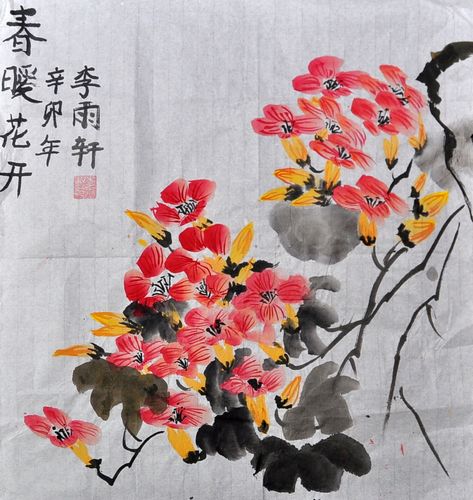 春暖花开
辛卯年
李雨轩